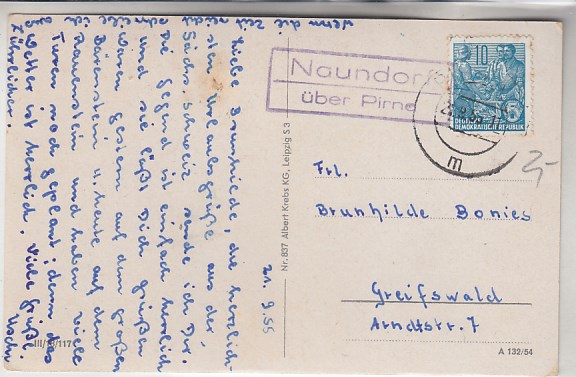 wenn die Zeit
Liebe Brunhilde, die herzlich-
sten Urlaubsgrüße aus der
Sächs. Schweiz sende ich Dir.
Die Gegend ist einfach herrlich
und sie läßt Dich grüßen
waren gestern auf dem großen
Bärenstein u. heute auf dem
Rauenstein und haben viele
Turen noch geplant; denn das
Wetter ist herrlich. Viele Grüße
21.9.55
III/18/117
Nr. 837 Albert Krebs KG, Leipzig S 3
Naundorf
über Pirna
10
5
DEUTSCHE
DEMOKRATISCHE REPUBLIK
m
Frl.
Brunhilde Bonies
Greifswald
Arndtstr. 7
A 132/54